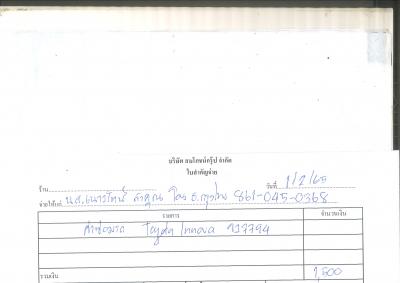 บริษัท สมโภชน์กรุ๊ป จำกัด
ใบสำคัญจ่าย
ร้าน วันที่ 1/2/65
จ่ายให้แก่ น.ส. โอน ธ.กรุงไทย 861-045-0368
รายการ จำนวนเงิน
ค่าซ่อมรถ Toyota Innova 227794
รวมเงิน 1,500